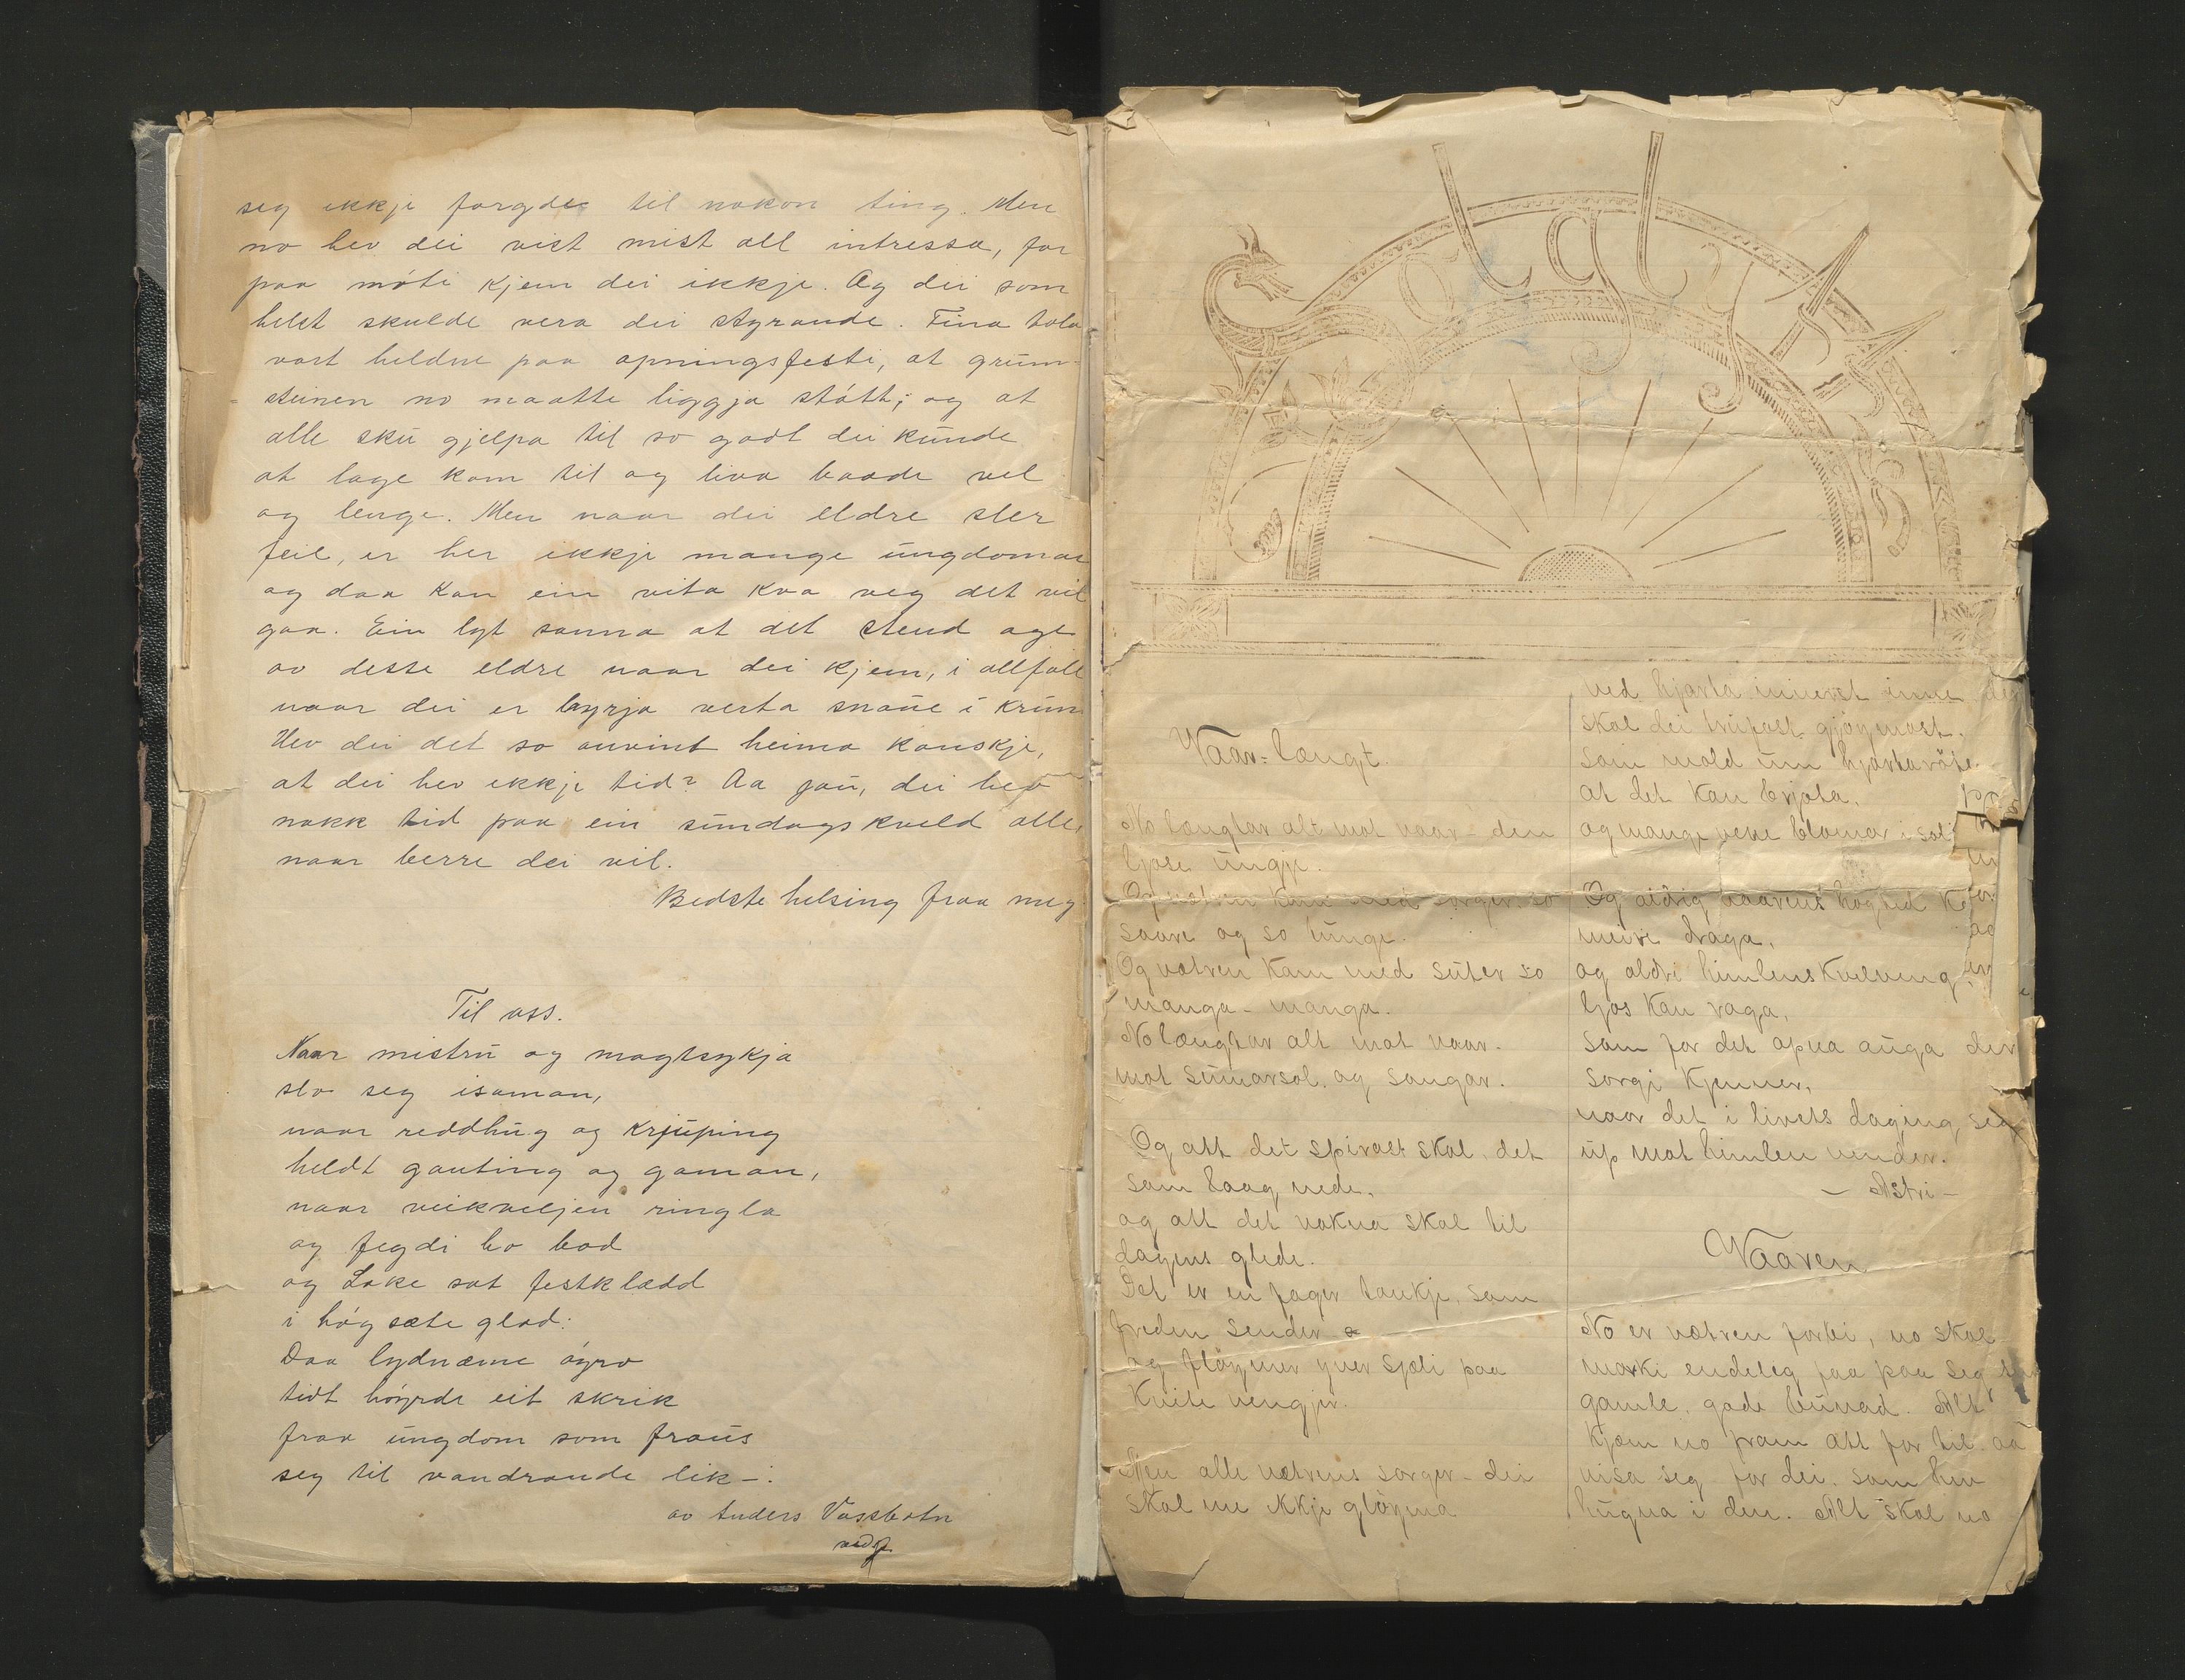 seg ikkje forgdes til nokon ting. Men
no hev dei vist mist all intressa, for
paa móti kjem dei ikkje. Og dei som
helst skulde vera dei styrande. Fina tola
vart heldne paa opningsfesti, at grunn-
steinen no maatte liggja stótt; og at
alle sku gjelpa til so godt dei kunde
at lage kom til og liva baade vel
og lenge. Men naar dei eldre sler
feil, er her ikkje mange ungdomar
og daa kan ein vita kva veg det vil
gaa. Ein lyt sanna at det stend age
av desse eldre naar dei kjem, i allfall
naar dei er byrja verta snaue i krun
Hev dei det so anvint heima kanskje,
at dei hev ikkje tid? Aa jau, dei hev
nokk tid paa ein sundagskveld alle,
naar berre dei vil.
Bedste helsing fraa meg.
Til oss.
Naar mistru og magtsykja
slo seg isaman,
naar reddhug og krjuping
heldt gauting og gaman,
naar veikviljen ringla
og fegdi ho bad
og Loke sat festklædd
i høgsæte glad:
Daa lydnæme óyro
tidt hóyrde eit skrik
fraa ungdom som fraus
seg til vandrande lik –:
av Anders Vassbotn
Vaar-længt.
No længtar alt mot vaar – den
ljose ungje.
Og vætren kom med sorger so
saare og so tunge.
Og vætren kam med suter so
manga – manga.
No længtar alt mot vaar.
mot sumarsol. og sangar.
Og alt det spirast skal, det
som laag nede,
og alt det vakna skal til
dagens glede.
Det er en fager tankje, som
freden sender
og fløymer yver sjæli paa
kvite vengjer.
Men alle vætrens sorger – dei
skal me ikkje gløyma
ved hjarta innerst inne der
skal dei trufast gjøymast.
Som mold um hjartarøte
at det kan brjota,
og mange vene blomar i soli
Og aldrig vaarens høgtid
meire draga,
og aldri himlens kvelveng
ljos kan raga,
som for det opna auga der
sorgi kjenner,
naar det i livets daging, seg
up mot himlen vender.
– Astri –
Vaaren
No er vætren forbi, no skal
marki endeleg faa paa seg
gamle, gode bunad. Alt
kjem no fram att for til aa
visa seg for dei. som hev
hugna i den. Alt skal no